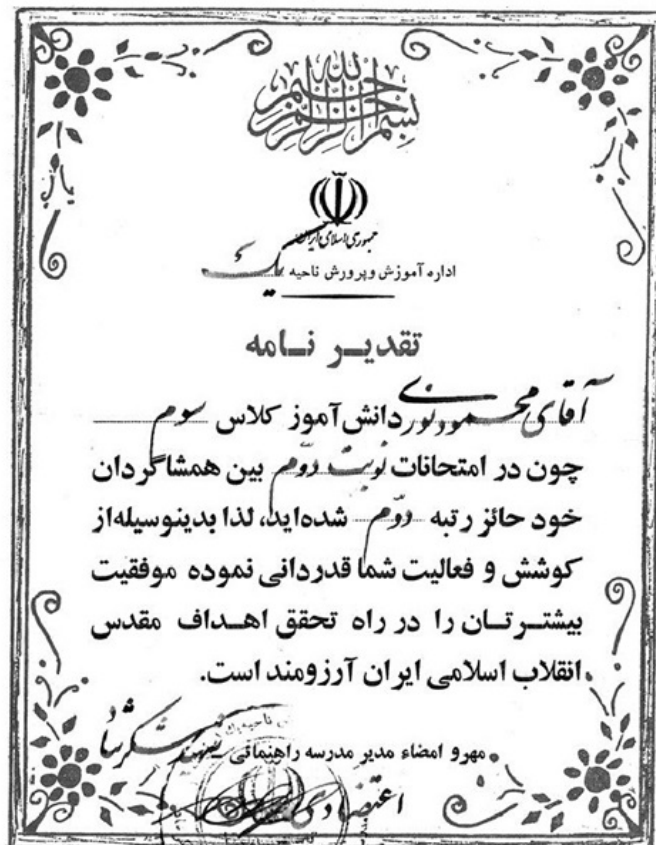 بسم الله الرحمن الرحیم
جمهوری اسلامی ایران
اداره آموزش وپرورش ناحیه یک
تقدیر نامه
آقای محمود نوری دانش‌آموز کلاس سوم
چون در امتحانات نوبت دوّم بین همشاگردان
خود حائز رتبه دوّم شده‌اید، لذا بدینوسیله از
کوشش و فعالیت شما قدردانی نموده موفقیت
بیشترتان را در راه تحقق اهداف مقدس
انقلاب اسلامی ایران آرزومند است.
مهرو امضاء مدیر مدرسه راهنمائی
اعتضادی